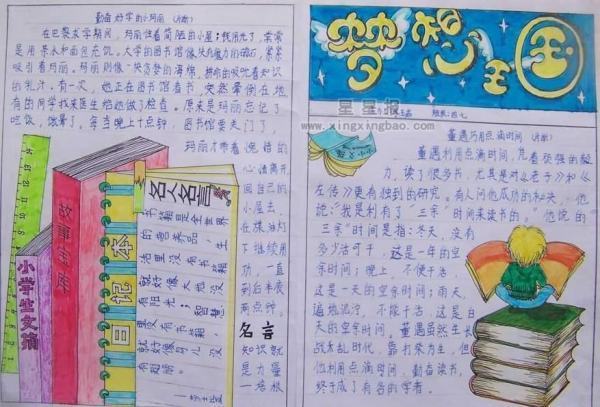 勤奋好学的小玛丽（片断）
在巴黎求学期间，玛丽住着简陋的小屋；钱用光了，常常
是用茶水和面包充饥。大学的图书馆像块有魔力的磁石，紧紧
吸引着玛丽。玛丽则像一块贪婪的海绵，拼命的吸吮着知识
的乳汁。有一次，她正在图书馆看书，突然晕倒在地
有的同学找来医生给她做了检查。原来是玛丽忘记了
吃饭，饿晕了。每当晚上十点钟，图书馆要关门了
玛丽才带着惋惜的
心情离开
回自己的
小屋去，
在煤油灯
下继续用
功，一直
到后半夜
两点钟。
名言
知识就
是力量
一培根
故事书
小学生文摘
日记本
名人名言
书籍是全世界
的营养品，生
活里没有书籍
就好像大地没
有阳光；智慧
里没有书籍
就好像鸟儿没
有翅膀。
梦想王国
星星报
www.xingxingbao.com
董遇巧用点滴时间（片断）
董遇利用点滴时间，凭着顽强的毅
力，读了很多书，尤其是对《老子》和《
左传》更有独到的研究。有人问他成功的秘诀，他
说：“我是利有了“三余”时间来读书的。”他说的
“三余”时间是指：冬天，没有
多少活可干，这是一年的空
余时间；晚上，不便干活，
这是一天的空余时间；雨天，
遍地泥泞，不能干活，这是白
天的空余时间。董遇虽然生长
战乱时代，靠打柴为生，但
他利用点滴时间，勤奋读书，
终于成了有名的学者。